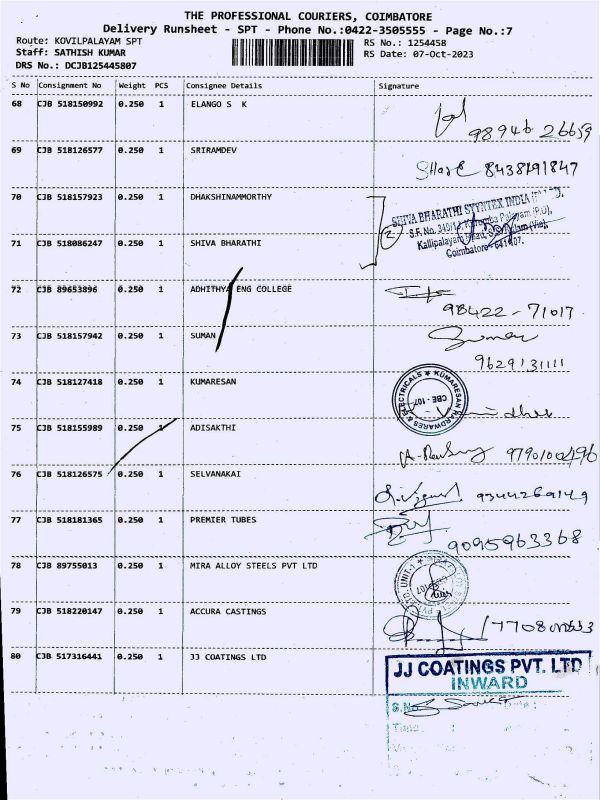 THE PROFESSIONAL COURIERS, COIMBATORE
Delivery Runsheet - SPT - Phone No.:0422-3505555 - Page No.:7
Route: KOVILPALAYAM SPT RS No.: 1254458
Staff: SATHISH KUMAR RS Date: 07-Oct-2023
DRS No.: DCJB125445807
S No Consignment No Weight PCS Consignee Details Signature
68 CJB 518150992 0.250 1 ELANGO S K
98946 26659
69 CJB 518126577 0.250 1 SRIRAMDEV
8438191847
70 CJB 518157923 0.250 1 DHAKSHINAMMORTHY
SHIVA BHARATHI SYNTEX INDIA
71 CJB 518086247 0.250 1 SHIVA BHARATHI
2
Coimbatore - 641107.
72 CJB 89653896 0.250 1 ADHITHYA ENG COLLEGE
98422-71017
73 CJB 518157942 0.250 1 SUMAN
9629131111
74 CJB 518127418 0.250 1 KUMARESAN
KUMARESAN HARDWARES & ELECTRICALS
CBE - 107
75 CJB 518155989 0.250 1 ADISAKTHI
9790100496
76 CJB 518126575 0.250 1 SELVANAKAI
9344269149
77 CJB 518181365 0.250 1 PREMIER TUBES
9095963368
78 CJB 89755013 0.250 1 MIRA ALLOY STEELS PVT LTD
UNIT-1
79 CJB 518220147 0.250 1 ACCURA CASTINGS
80 CJB 517316441 0.250 1 JJ COATINGS LTD
JJ COATINGS PVT. LTD
INWARD
S.No